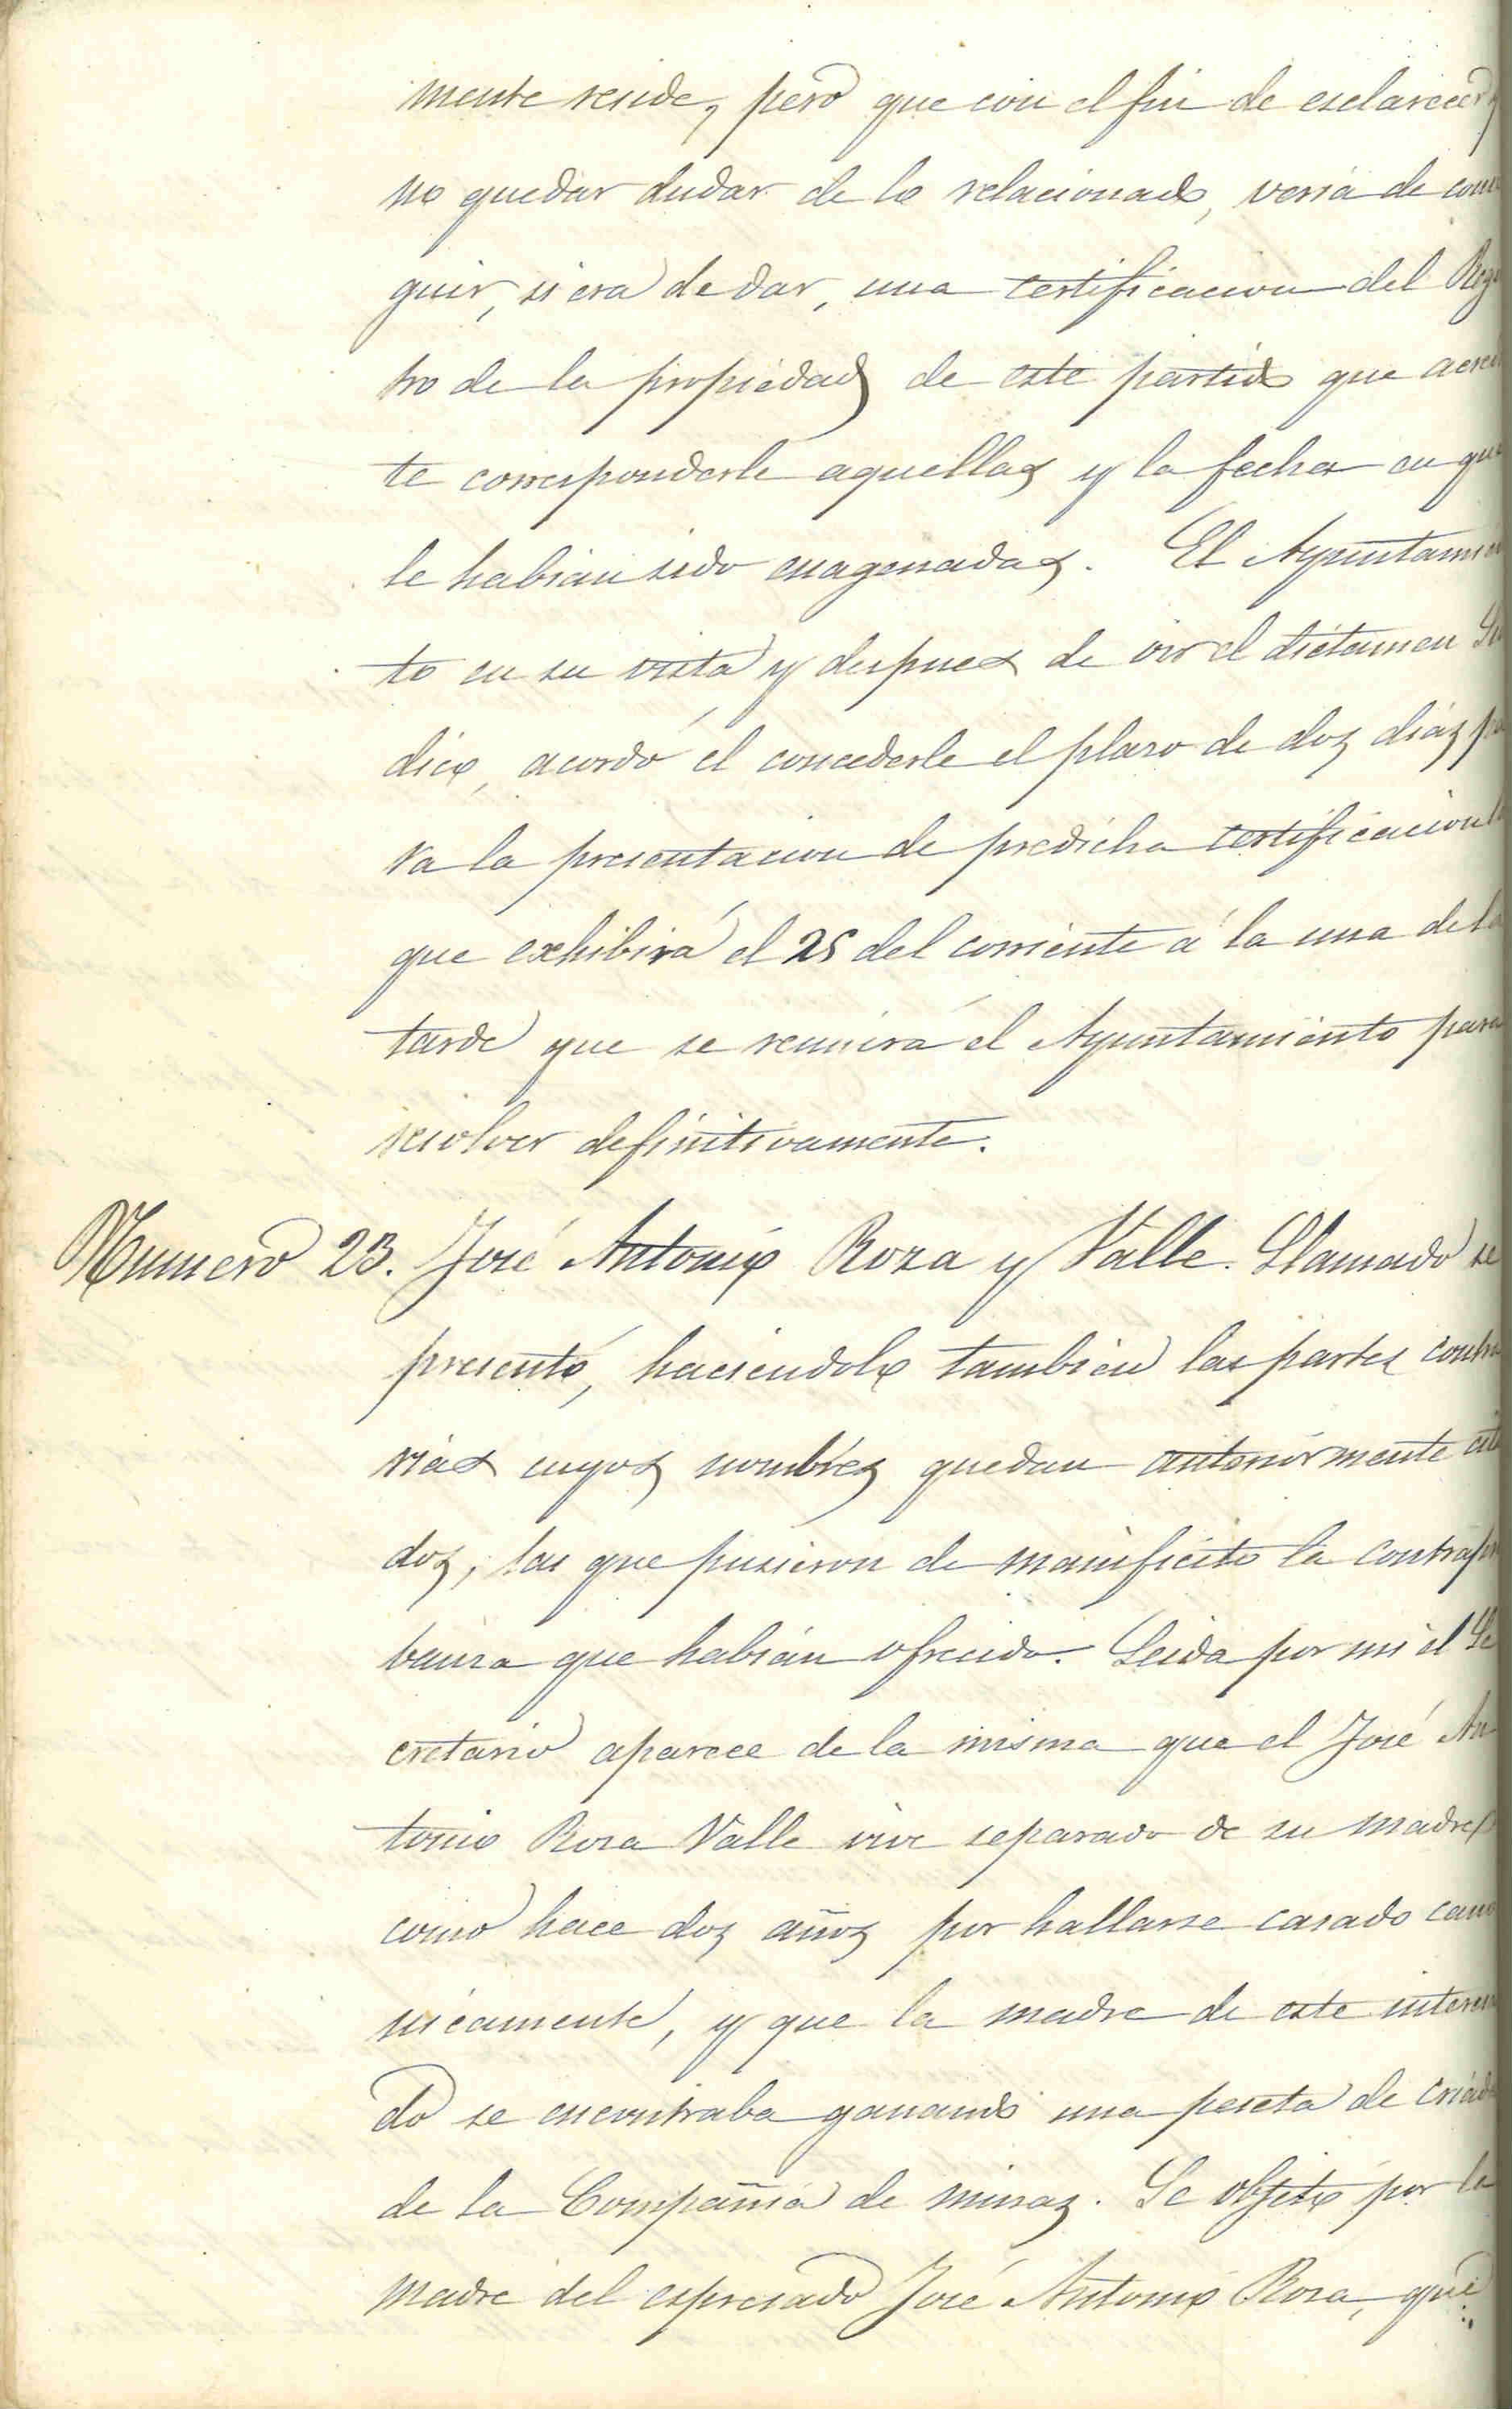 mente reside, pero que con el fin de esclarecer y
no quedar dudar de lo relacionado, vería de conse
guir, si era de dar, una certificacion del Regis
tro de la propiedad de este partido que acredi
te corresponderle aquellas y la fecha en que
le habian sido enagenadas. El Ayuntamien
to en su vista y despues de oir el dictámen Sin
dico, acordó el concederle el plaso de dos dias pa
ra la presentacion de predicha certificacion
que exhibirá el 25 del corriente á la una de la
tarde que se reunirá el Ayuntamiento para
resolver definitivamente.
Numero 23. José Antonio Roza y Valle. Llamado se
presentó, haciendolo tambien las partes contra
rias cuyos nombres quedan anteriormente cita
dos, las que pusieron de manifiesto la contrapro
banza que habían ofrecido. Leida por mi el Se
cretario aparece de la misma que el José An
tonio Roza Valle vive separado de su madre
como hace dos años por hallarse casado cano
nicamente, y que la madre de este interesa
do se encontraba ganando una peseta de criada
de la Compañía de minas. Se objeto por la
madre del espresado José Antonio Roza, que